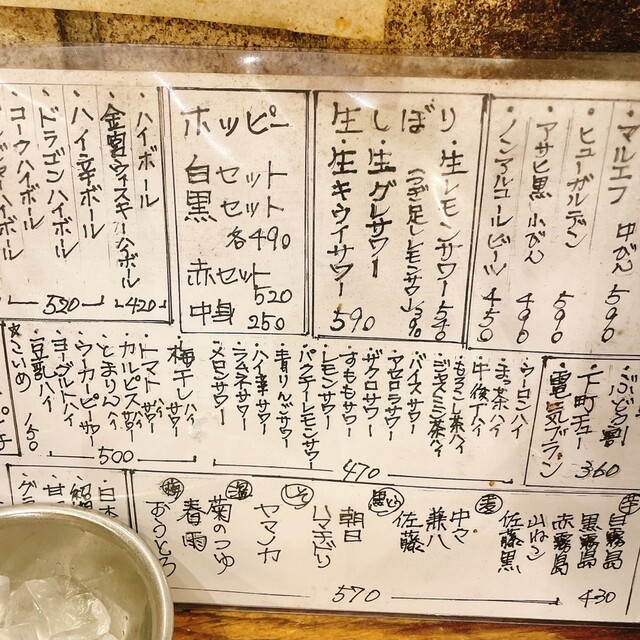 ・マルエフ 中びん 590
・ヒューガルデン 590
・アサヒ黒 小びん 490
・ノンアルコールビーツ 450
生しぼり
・生レモンサワー 540
(つぎ足しレモンサワー)390
・生グレサワー
・生キウイサワー 590
ホッピー
白セット
黒セット
各490
赤セット 520
中身 250
・ハイボール
・金宮ウィスキーハイボール
420
・ハイ辛ボール
・ドラゴンハイボール
・コークハイボール
520
・ぶどう割
・下町チュー
・電気ブラン
360
・ウーロンハイ
・まっ茶ハイ
・もろこし茶ハイ
・ジャスミン茶ハイ
・バイスサワー
・アセロラサワー
・ザクロサワー
・すももサワー
・レモンサワー
・パクチーレモンサワー
・青りんごサワー
・ハイ辛サワー
・ラムネサワー
・メロンサワー
470
・梅干しハイ サワー
・トマトハイ サワー
・カルピスハイ サワー
・とまりんハイ
・ウーカーピーサワー
・ヨーグルトハイ
・豆乳ハイ
500
★こいめ 150
芋
白霧島
黒霧島
赤霧島
山ねこ
佐藤黒
430
麦
中々
兼八
佐藤
黒糖
朝日
しそ
ヤマノカ
菊のつゆ
春雨
おうとろ
570
・日本
・紹
・甘
・グラ